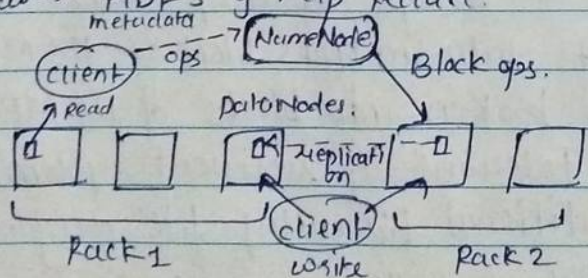 metadata
ops
NameNode
client
Block ops.
Read
DataNodes.
replicati
on
client
Rack 1
write
Rack 2